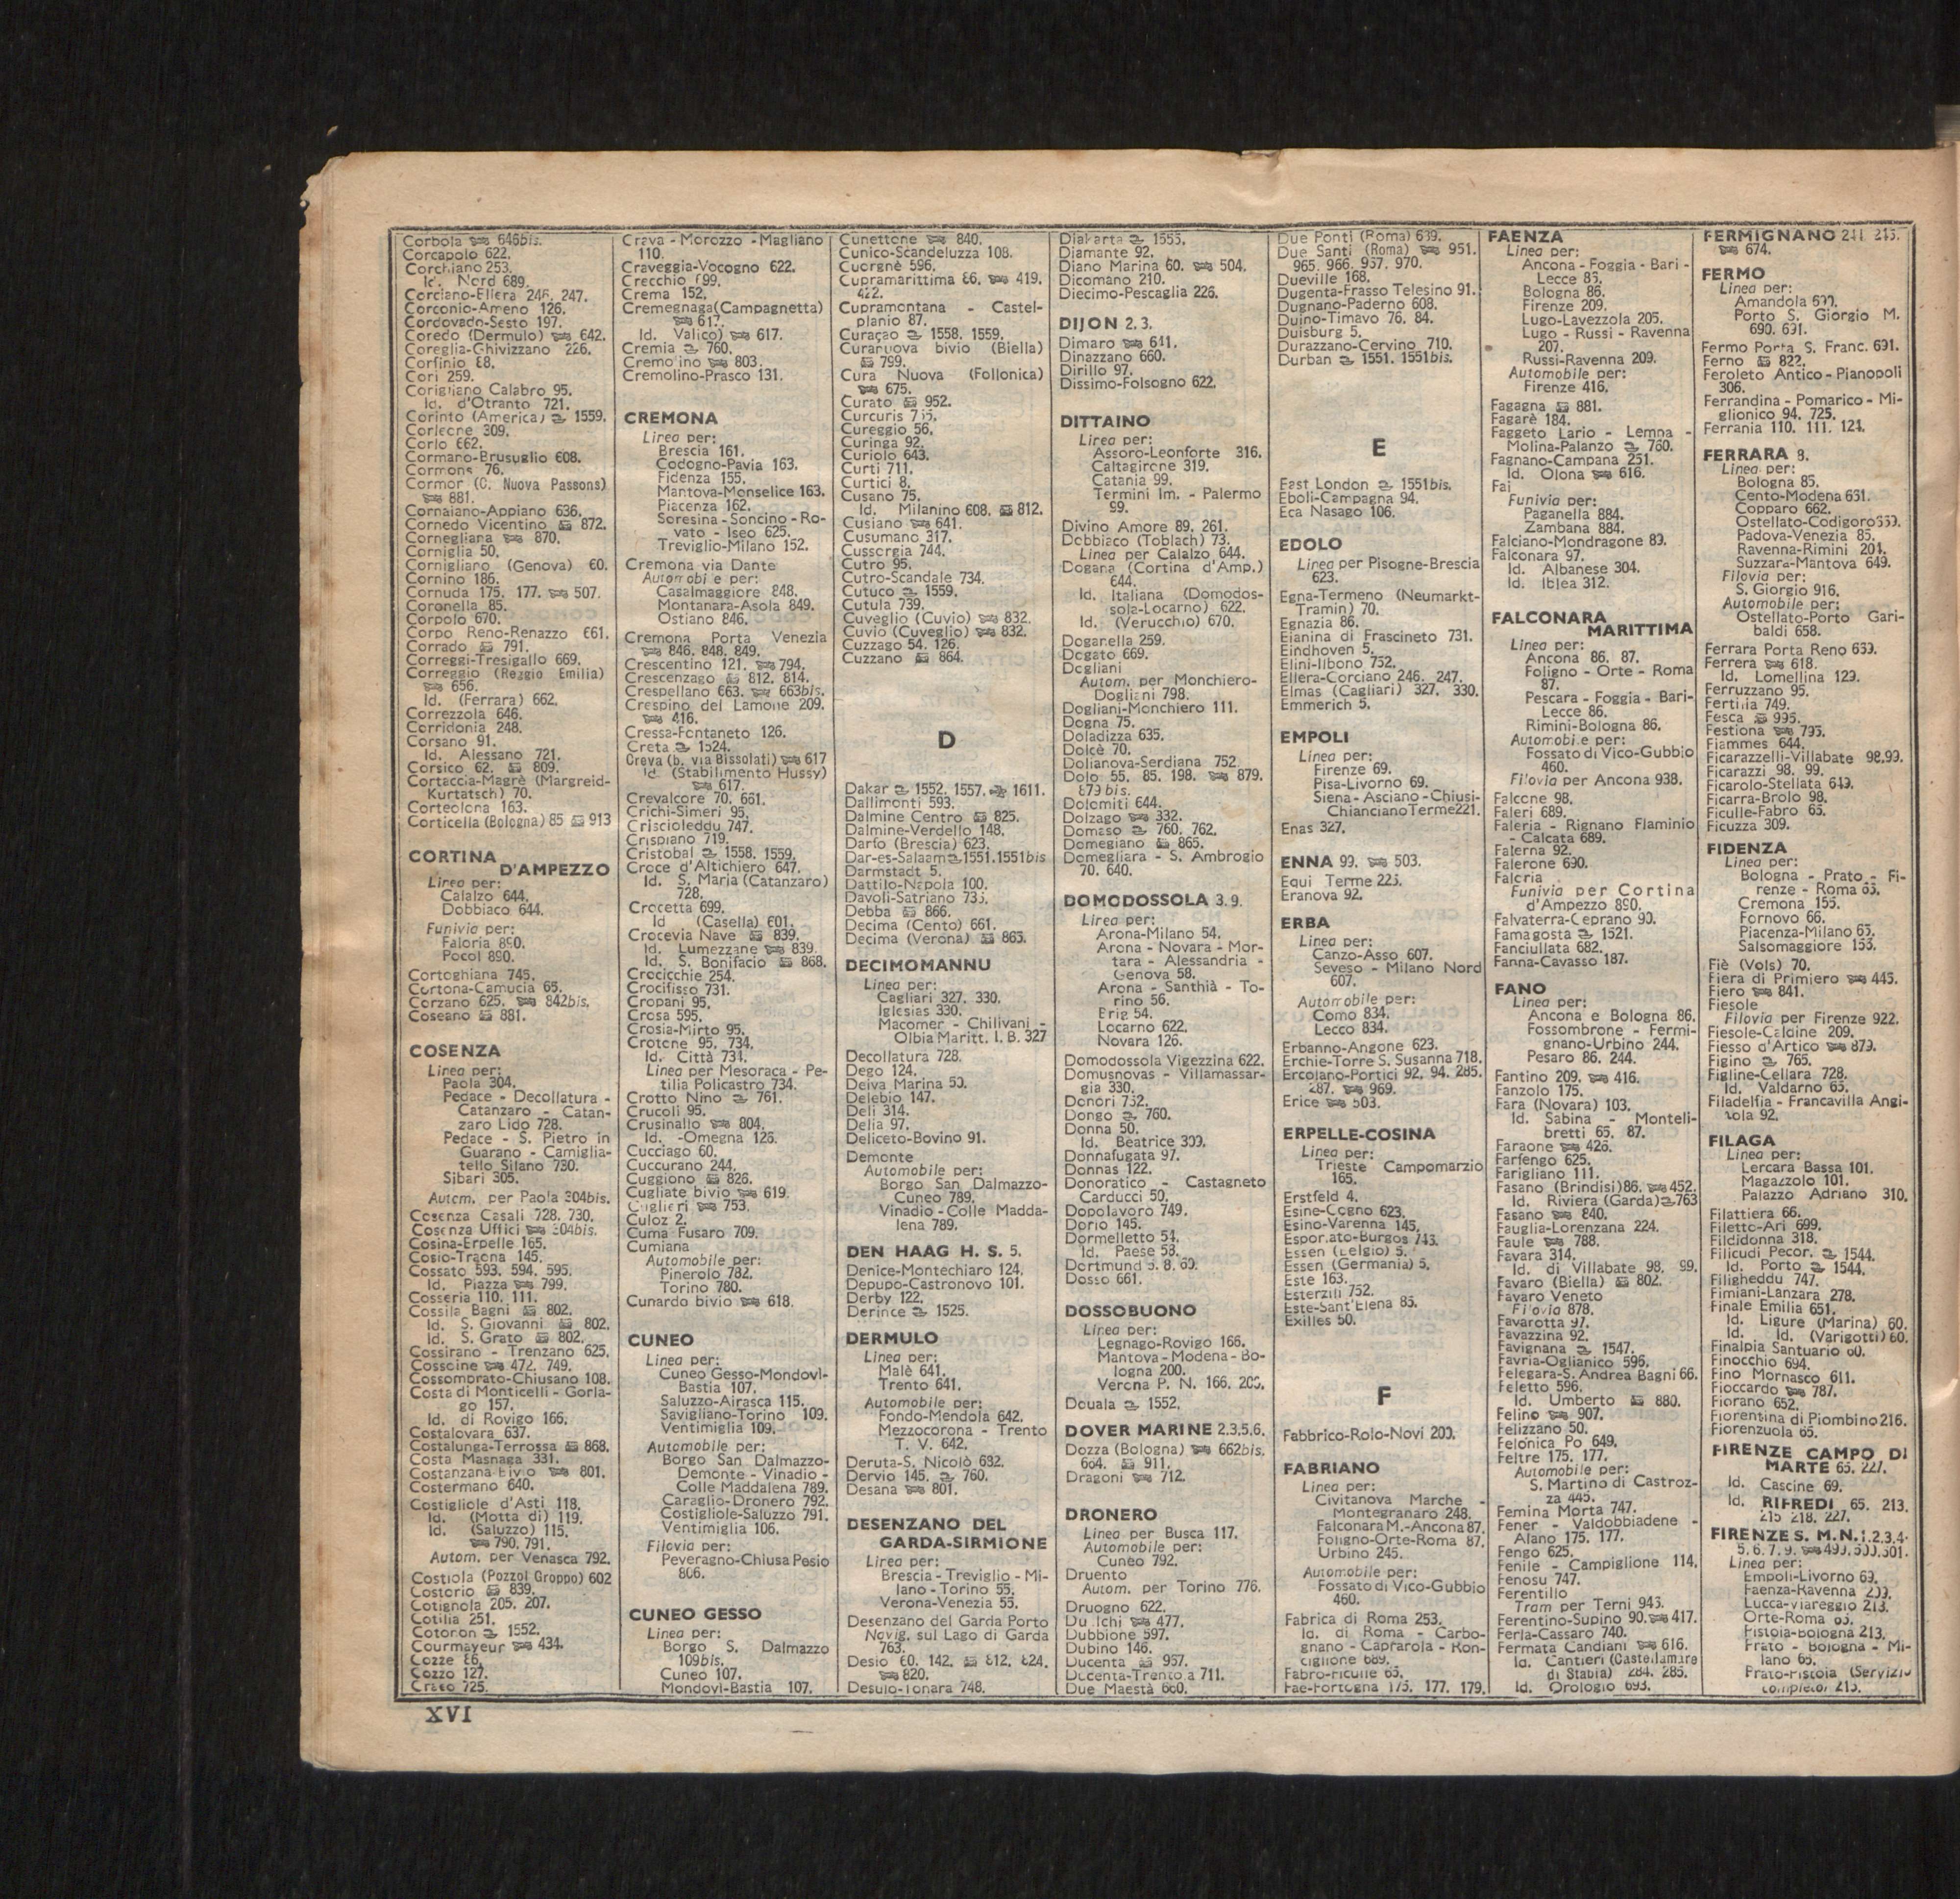 Corbola 646bis.
Corcapolo 622.
Corchiano 253.
Id. Nord 689.
Corciano-Ellera 246, 247.
Corconio-Ameno 126.
Cordovado-Sesto 197.
Coredo (Dermulo) 642.
Coreglia-Ghivizzano 226.
Corfinio 88.
Cori 259.
Corigliano Calabro 95.
Id. d'Otranto 721.
Corinto (America) 1559.
Corleone 309.
Corlo 662.
Cormano-Brusuglio 608.
Cormons 76.
Cormor (C. Nuova Passons)
881.
Cornaiano-Appiano 636.
Cornedo Vicentino 872.
Cornegliana 870.
Corniglia 50.
Cornigliano (Genova) 60.
Cornino 186.
Cornuda 175. 177. 507.
Coronella 85.
Corpolo 670.
Corpo Reno-Renazzo 661.
Corrado 791.
Correggi-Tresigallo 669.
Correggio (Reggio Emilia)
656.
Id. (Ferrara) 662.
Correzzola 646.
Corridonia 248.
Corsano 91.
Id. Alessano 721.
Corsico 62. 809.
Cortaccia-Magrè (Margreid-
Kurtatsch) 70.
Corteolona 163.
Corticella (Bologna) 85 913
CORTINA
D'AMPEZZO
Linea per:
Calalzo 644.
Dobbiaco 644.
Funivia per:
Faloria 890.
Pocol 890.
Cortoghiana 745.
Cortona-Camucia 65.
Corzano 625. 842bis.
Coseano 881.
COSENZA
Linea per:
Paola 304.
Pedace - Decollatura -
Catanzaro - Catan-
zaro Lido 728.
Pedace - S. Pietro in
Guarano - Camiglia-
tello Silano 730.
Sibari 305.
Autom. per Paola 304bis.
Cosenza Casali 728. 730.
Cosenza Uffici 304bis.
Cosina-Erpelle 165.
Cosio-Traona 145.
Cossato 593. 594. 595.
Id. Piazza 799.
Cosseria 110. 111.
Cossila Bagni 802.
Id. S. Giovanni 802.
Id. S. Grato 802.
Cossirano - Trenzano 625.
Cossoine 472. 749.
Cossombrato-Chiusano 108.
Costa di Monticelli - Gorla-
go 157.
Id. di Rovigo 166.
Costalovara 637.
Costalunga-Terrossa 868.
Costa Masnaga 331.
Costanzana bivio 801.
Costermano 640.
Costigliole d'Asti 118.
Id. (Motta di) 119.
Id. (Saluzzo) 115.
790. 791.
Autom. per Venasca 792.
Costiola (Pozzol Groppo) 602
Costorio 839.
Cotignola 205. 207.
Cotilia 251.
Cotonon 1552.
Courmayeur 434.
Cozze 86.
Cozzo 127.
Craco 725.
Crava - Morozzo - Magliano
110.
Craveggia-Vocogno 622.
Crecchio 699.
Crema 152.
Cremegnaga (Campagnetta)
617.
Id. Valico) 617.
Cremia 760.
Cremolino 803.
Cremolino-Prasco 131.
CREMONA
Linea per:
Brescia 161.
Codogno-Pavia 163.
Fidenza 155.
Mantova-Monselice 163.
Piacenza 162.
Soresina - Soncino - Ro-
vato - Iseo 625.
Treviglio-Milano 152.
Cremona via Dante
Automobile per:
Casalmaggiore 848.
Montanara-Asola 849.
Ostiano 846.
Cremona Porta Venezia
846. 848. 849.
Crescentino 121. 794.
Crescenzago 812. 814.
Crespellano 663. 663bis.
Crespino del Lamone 209.
416.
Cressa-Fontaneto 126.
Creta 1524.
Creva (b. via Bissolati) 617
Id. (Stabilimento Hussy)
617.
Crevalcore 70. 661.
Crichi-Simeri 95.
Criscioleddu 747.
Crispiano 719.
Cristobal 1558. 1559.
Croce d'Altichiero 647.
Id. S. Maria (Catanzaro)
728.
Crocetta 699.
Id (Casella) 601.
Crocevia Nave 839.
Id. Lumezzane 839.
Id. S. Bonifacio 868.
Crocicchie 254.
Crocifisso 731.
Cropani 95.
Crosa 595.
Crosia-Mirto 95.
Crotone 95. 734.
Id. Città 734.
Linea per Mesoraca - Pe-
tilia Policastro 734.
Crotto Nino 761.
Crucoli 95.
Crusinallo 804.
Id. -Omegna 126.
Cucciago 60.
Cuccurano 244.
Cuggiono 826.
Cugliate bivio 619.
Cuglieri 753.
Culoz 2.
Cuma Fusaro 709.
Cumiana
Automobile per:
Pinerolo 782.
Torino 780.
Cunardo bivio 618.
CUNEO
Linea per:
Cuneo Gesso-Mondovì-
Bastia 107.
Saluzzo-Airasca 115.
Savigliano-Torino 109.
Ventimiglia 109.
Automobile per:
Borgo San Dalmazzo-
Demonte - Vinadio -
Colle Maddalena 789.
Caraglio-Dronero 792.
Costigliole-Saluzzo 791.
Ventimiglia 106.
Filovia per:
Peveragno-Chiusa Pesio
806.
CUNEO GESSO
Linea per:
Borgo S. Dalmazzo
109bis.
Cuneo 107.
Mondovì-Bastia 107.
Cunettone 840.
Cunico-Scandeluzza 108.
Cuorgnè 596.
Cupramarittima 86. 419.
422.
Cupramontana - Castel-
planio 87.
Curaçao 1558. 1559.
Curanuova bivio (Biella)
799.
Cura Nuova (Follonica)
675.
Curato 952.
Curcuris 735.
Cureggio 56.
Curinga 92.
Curiolo 643.
Curti 711.
Curtici 8.
Cusano 75.
Id. Milanino 608. 812.
Cusiano 641.
Cusumano 317.
Cussorgia 744.
Cutro 95.
Cutro-Scandale 734.
Cutuco 1559.
Cutula 739.
Cuveglio (Cuvio) 832.
Cuvio (Cuveglio) 832.
Cuzzago 54. 126.
Cuzzano 864.
D
Dakar 1552. 1557. 1611.
Dallimonti 593.
Dalmine Centro 825.
Dalmine-Verdello 148.
Darfo (Brescia) 623.
Dar-es-Salaam 1551.1551bis
Darmstadt 5.
Dattilo-Napola 100.
Davoli-Satriano 735.
Debba 866.
Decima (Cento) 661.
Decima (Verona) 865.
DECIMOMANNU
Linea per:
Cagliari 327. 330.
Iglesias 330.
Macomer - Chilivani -
Olbia Maritt. I. B. 327
Decollatura 728.
Dego 124.
Deiva Marina 50.
Delebio 147.
Deli 314.
Delia 97.
Deliceto-Bovino 91.
Demonte
Automobile per:
Borgo San Dalmazzo-
Cuneo 789.
Vinadio - Colle Madda-
lena 789.
DEN HAAG H. S. 5.
Denice-Montechiaro 124.
Depupo-Castronovo 101.
Derby 122.
Derince 1525.
DERMULO
Linea per:
Malè 641.
Trento 641.
Automobile per:
Fondo-Mendola 642.
Mezzocorona - Trento
T. V. 642.
Deruta-S. Nicolò 682.
Dervio 145. 760.
Desana 801.
DESENZANO DEL
GARDA-SIRMIONE
Linea per:
Brescia - Treviglio - Mi-
lano - Torino 55.
Verona-Venezia 55.
Desenzano del Garda Porto
Navig. sul Lago di Garda
763.
Desio 60. 142. 812. 824.
820.
Desulo-Tonara 748.
Diakarta 1555.
Diamante 92.
Diano Marina 60. 504.
Dicomano 210.
Diecimo-Pescaglia 226.
DIJON 2. 3.
Dimaro 641.
Dinazzano 660.
Dirillo 97.
Dissimo-Folsogno 622.
DITTAINO
Linea per:
Assoro-Leonforte 316.
Caltagirone 319.
Catania 99.
Termini Im. - Palermo
99.
Divino Amore 89. 261.
Dobbiaco (Toblach) 73.
Linea per Calalzo 644.
Dogana (Cortina d'Amp.)
644.
Id. Italiana (Domodos-
sola-Locarno) 622.
Id. (Verucchio) 670.
Doganella 259.
Dogato 669.
Dogliani
Autom. per Monchiero-
Dogliani 798.
Dogliani-Monchiero 111.
Dogna 75.
Doladizza 635.
Dolcè 70.
Dolianova-Serdiana 752.
Dolo 55. 85. 198. 879.
879 bis.
Dolomiti 644.
Dolzago 332.
Domaso 760. 762.
Domegiano 865.
Domegliara - S. Ambrogio
70. 640.
DOMODOSSOLA 3. 9.
Linea per:
Arona-Milano 54.
Arona - Novara - Mor-
tara - Alessandria -
Genova 58.
Arona - Santhià - To-
rino 56.
Brig 54.
Locarno 622.
Novara 126.
Domodossola Vigezzina 622.
Domusnovas - Villamassar-
gia 330.
Donori 752.
Dongo 760.
Donna 50.
Id. Beatrice 309.
Donnafugata 97.
Donnas 122.
Donoratico - Castagneto
Carducci 50.
Dopolavoro 749.
Dorio 145.
Dormelletto 54.
Id. Paese 58.
Dortmund 5. 8. 69.
Dosso 661.
DOSSOBUONO
Linea per:
Legnago-Rovigo 166.
Mantova - Modena - Bo-
logna 200.
Verona P. N. 166. 200.
Douala 1552.
DOVER MARINE 2.3.5.6.
Dozza (Bologna) 662bis.
664. 911.
Dragoni 712.
DRONERO
Linea per Busca 117.
Automobile per:
Cuneo 792.
Druento
Autom. per Torino 776.
Druogno 622.
Du Ichi 477.
Dubbione 597.
Dubino 146.
Ducenta 967.
Ducenta-Trentola 711.
Due Maestà 660.
Due Ponti (Roma) 689.
Due Santi (Roma) 951.
965. 966. 967. 970.
Dueville 168.
Dugenta-Frasso Telesino 91.
Dugnano-Paderno 608.
Duino-Timavo 76. 84.
Duisburg 5.
Durazzano-Cervino 710.
Durban 1551. 1551bis.
E
East London 1551bis.
Eboli-Campagna 94.
Eca Nasago 106.
EDOLO
Linea per Pisogne-Brescia
623.
Egna-Termeno (Neumarkt-
Tramin) 70.
Egnazia 86.
Eianina di Frascineto 731.
Eindhoven 5.
Elini-Ilbono 752.
Ellera-Corciano 246. 247.
Elmas (Cagliari) 327. 330.
Emmerich 5.
EMPOLI
Linea per:
Firenze 69.
Pisa-Livorno 69.
Siena - Asciano - Chiusi-
Chianciano Terme 221.
Enas 327.
ENNA 99. 503.
Equi Terme 225.
Eranova 92.
ERBA
Linea per:
Canzo-Asso 607.
Seveso - Milano Nord
607.
Automobile per:
Como 834.
Lecco 834.
Erbanno-Angone 623.
Erchie-Torre S. Susanna 718.
Ercolano-Portici 92. 94. 285.
287. 969.
Erice 503.
ERPELLE-COSINA
Linea per:
Trieste Campomarzio
165.
Erstfeld 4.
Esine-Cogno 623.
Esino-Varenna 145.
Esporlato-Burgos 743.
Essen (Belgio) 5.
Essen (Germania) 5.
Este 163.
Esterzili 752.
Este-Sant'Elena 85.
Exilles 50.
F
Fabbrico-Rolo-Novi 200.
FABRIANO
Linea per:
Civitanova Marche -
Montegranaro 248.
Falconara M.-Ancona 87.
Foligno-Orte-Roma 87.
Urbino 245.
Automobile per:
Fossato di Vico-Gubbio
460.
Fabrica di Roma 253.
Id. di Roma - Carbo-
gnano - Caprarola - Ron-
ciglione 689.
Fabro-Ficulle 65.
Fae-Fortogna 175. 177. 179.
FAENZA
Linea per:
Ancona - Foggia - Bari -
Lecce 86.
Bologna 86.
Firenze 209.
Lugo-Lavezzola 205.
Lugo - Russi - Ravenna
207.
Russi-Ravenna 209.
Automobile per:
Firenze 416.
Fagagna 881.
Fagarè 184.
Faggeto Lario - Lemna -
Molina-Palanzo 760.
Fagnano-Campana 251.
Id. Olona 616.
Fai
Funivia per:
Paganella 884.
Zambana 884.
Falciano-Mondragone 89.
Falconara 97.
Id. Albanese 304.
Id. Iblea 312.
FALCONARA
MARITTIMA
Linea per:
Ancona 86. 87.
Foligno - Orte - Roma
87.
Pescara - Foggia - Bari-
Lecce 86.
Rimini-Bologna 86.
Automobile per:
Fossato di Vico-Gubbio
460.
Filovia per Ancona 938.
Falcone 98.
Faleri 689.
Faleria - Rignano Flaminio
- Calcata 689.
Falerna 92.
Falerone 690.
Faloria
Funivia per Cortina
d'Ampezzo 890.
Falvaterra-Ceprano 90.
Famagosta 1521.
Fanciullata 682.
Fanna-Cavasso 187.
FANO
Linea per:
Ancona e Bologna 86.
Fossombrone - Fermi-
gnano-Urbino 244.
Pesaro 86. 244.
Fantino 209. 416.
Fanzolo 175.
Fara (Novara) 103.
Id. Sabina - Monteli-
bretti 65. 87.
Faraone 426.
Farfengo 625.
Farigliano 111.
Fasano (Brindisi) 86. 452.
Id. Riviera (Garda) 763
Fasano 840.
Fauglia-Lorenzana 224.
Faule 788.
Favara 314.
Id. di Villabate 98. 99.
Favaro (Biella) 802.
Favaro Veneto
Filovia 878.
Favarotta 97.
Favazzina 92.
Favignana 1547.
Favria-Oglianico 596.
Felegara-S. Andrea Bagni 66.
Feletto 596.
Id. Umberto 880.
Felino 907.
Felizzano 50.
Felonica Po 649.
Feltre 175. 177.
Automobile per:
S. Martino di Castroz-
za 445.
Femina Morta 747.
Fener - Valdobbiadene -
Alano 175. 177.
Fengo 625.
Fenile - Campiglione 114.
Fenosu 747.
Ferentillo
Tram per Terni 943.
Ferentino-Supino 90. 417.
Ferla-Cassaro 740.
Fermata Candiani 616.
Id. Cantieri (Castellamare
di Stabia) 284. 285.
Id. Orologio 693.
FERMIGNANO 244. 245.
674.
FERMO
Linea per:
Amandola 690.
Porto S. Giorgio M.
690. 691.
Fermo Porta S. Franc. 691.
Ferno 822.
Feroleto Antico - Pianopoli
306.
Ferrandina - Pomarico - Mi-
glionico 94. 725.
Ferrania 110. 111. 124.
FERRARA 8.
Linea per:
Bologna 85.
Cento-Modena 661.
Copparo 662.
Ostellato-Codigoro 669.
Padova-Venezia 85.
Ravenna-Rimini 204.
Suzzara-Mantova 649.
Filovia per:
S. Giorgio 916.
Automobile per:
Ostellato-Porto Gari-
baldi 658.
Ferrara Porta Reno 669.
Ferrera 618.
Id. Lomellina 129.
Ferruzzano 95.
Fertilia 749.
Fesca 995.
Festiona 795.
Fiammes 644.
Ficarazzelli-Villabate 98.99.
Ficarazzi 98. 99.
Ficarolo-Stellata 649.
Ficarra-Brolo 98.
Ficulle-Fabro 65.
Ficuzza 309.
FIDENZA
Linea per:
Bologna - Prato - Fi-
renze - Roma 65.
Cremona 155.
Fornovo 66.
Piacenza-Milano 65.
Salsomaggiore 153.
Fiè (Vols) 70.
Fiera di Primiero 445.
Fiero 841.
Fiesole
Filovia per Firenze 922.
Fiesole-Caldine 209.
Fiesso d'Artico 879.
Figino 765.
Figline-Cellara 728.
Id. Valdarno 65.
Filadelfia - Francavilla Angi-
tola 92.
FILAGA
Linea per:
Lercara Bassa 101.
Magazzolo 101.
Palazzo Adriano 310.
Filattiera 66.
Filetto-Ari 699.
Fildidonna 318.
Filicudi Pecor. 1544.
Id. Porto 1544.
Filigheddu 747.
Fimiani-Lanzara 278.
Finale Emilia 651.
Id. Ligure (Marina) 60.
Id. Id. (Varigotti) 60.
Finalpia Santuario 60.
Finocchio 694.
Fino Mornasco 611.
Fioccardo 787.
Fiorano 652.
Fiorentina di Piombino 216.
Fiorenzuola 65.
FIRENZE CAMPO DI
MARTE 65. 227.
Id. Cascine 69.
Id. RIFREDI 65. 213.
215. 218. 227.
FIRENZE S. M. N. 1.2.3.4.
5. 6. 7. 9. 499. 500. 501.
Linea per:
Empoli-Livorno 69.
Faenza-Ravenna 209.
Lucca-Viareggio 213.
Orte-Roma 65.
Pistoia-Bologna 213.
Prato - Bologna - Mi-
lano 65.
Prato-Pistoia (Servizio
completo) 213.
XVI